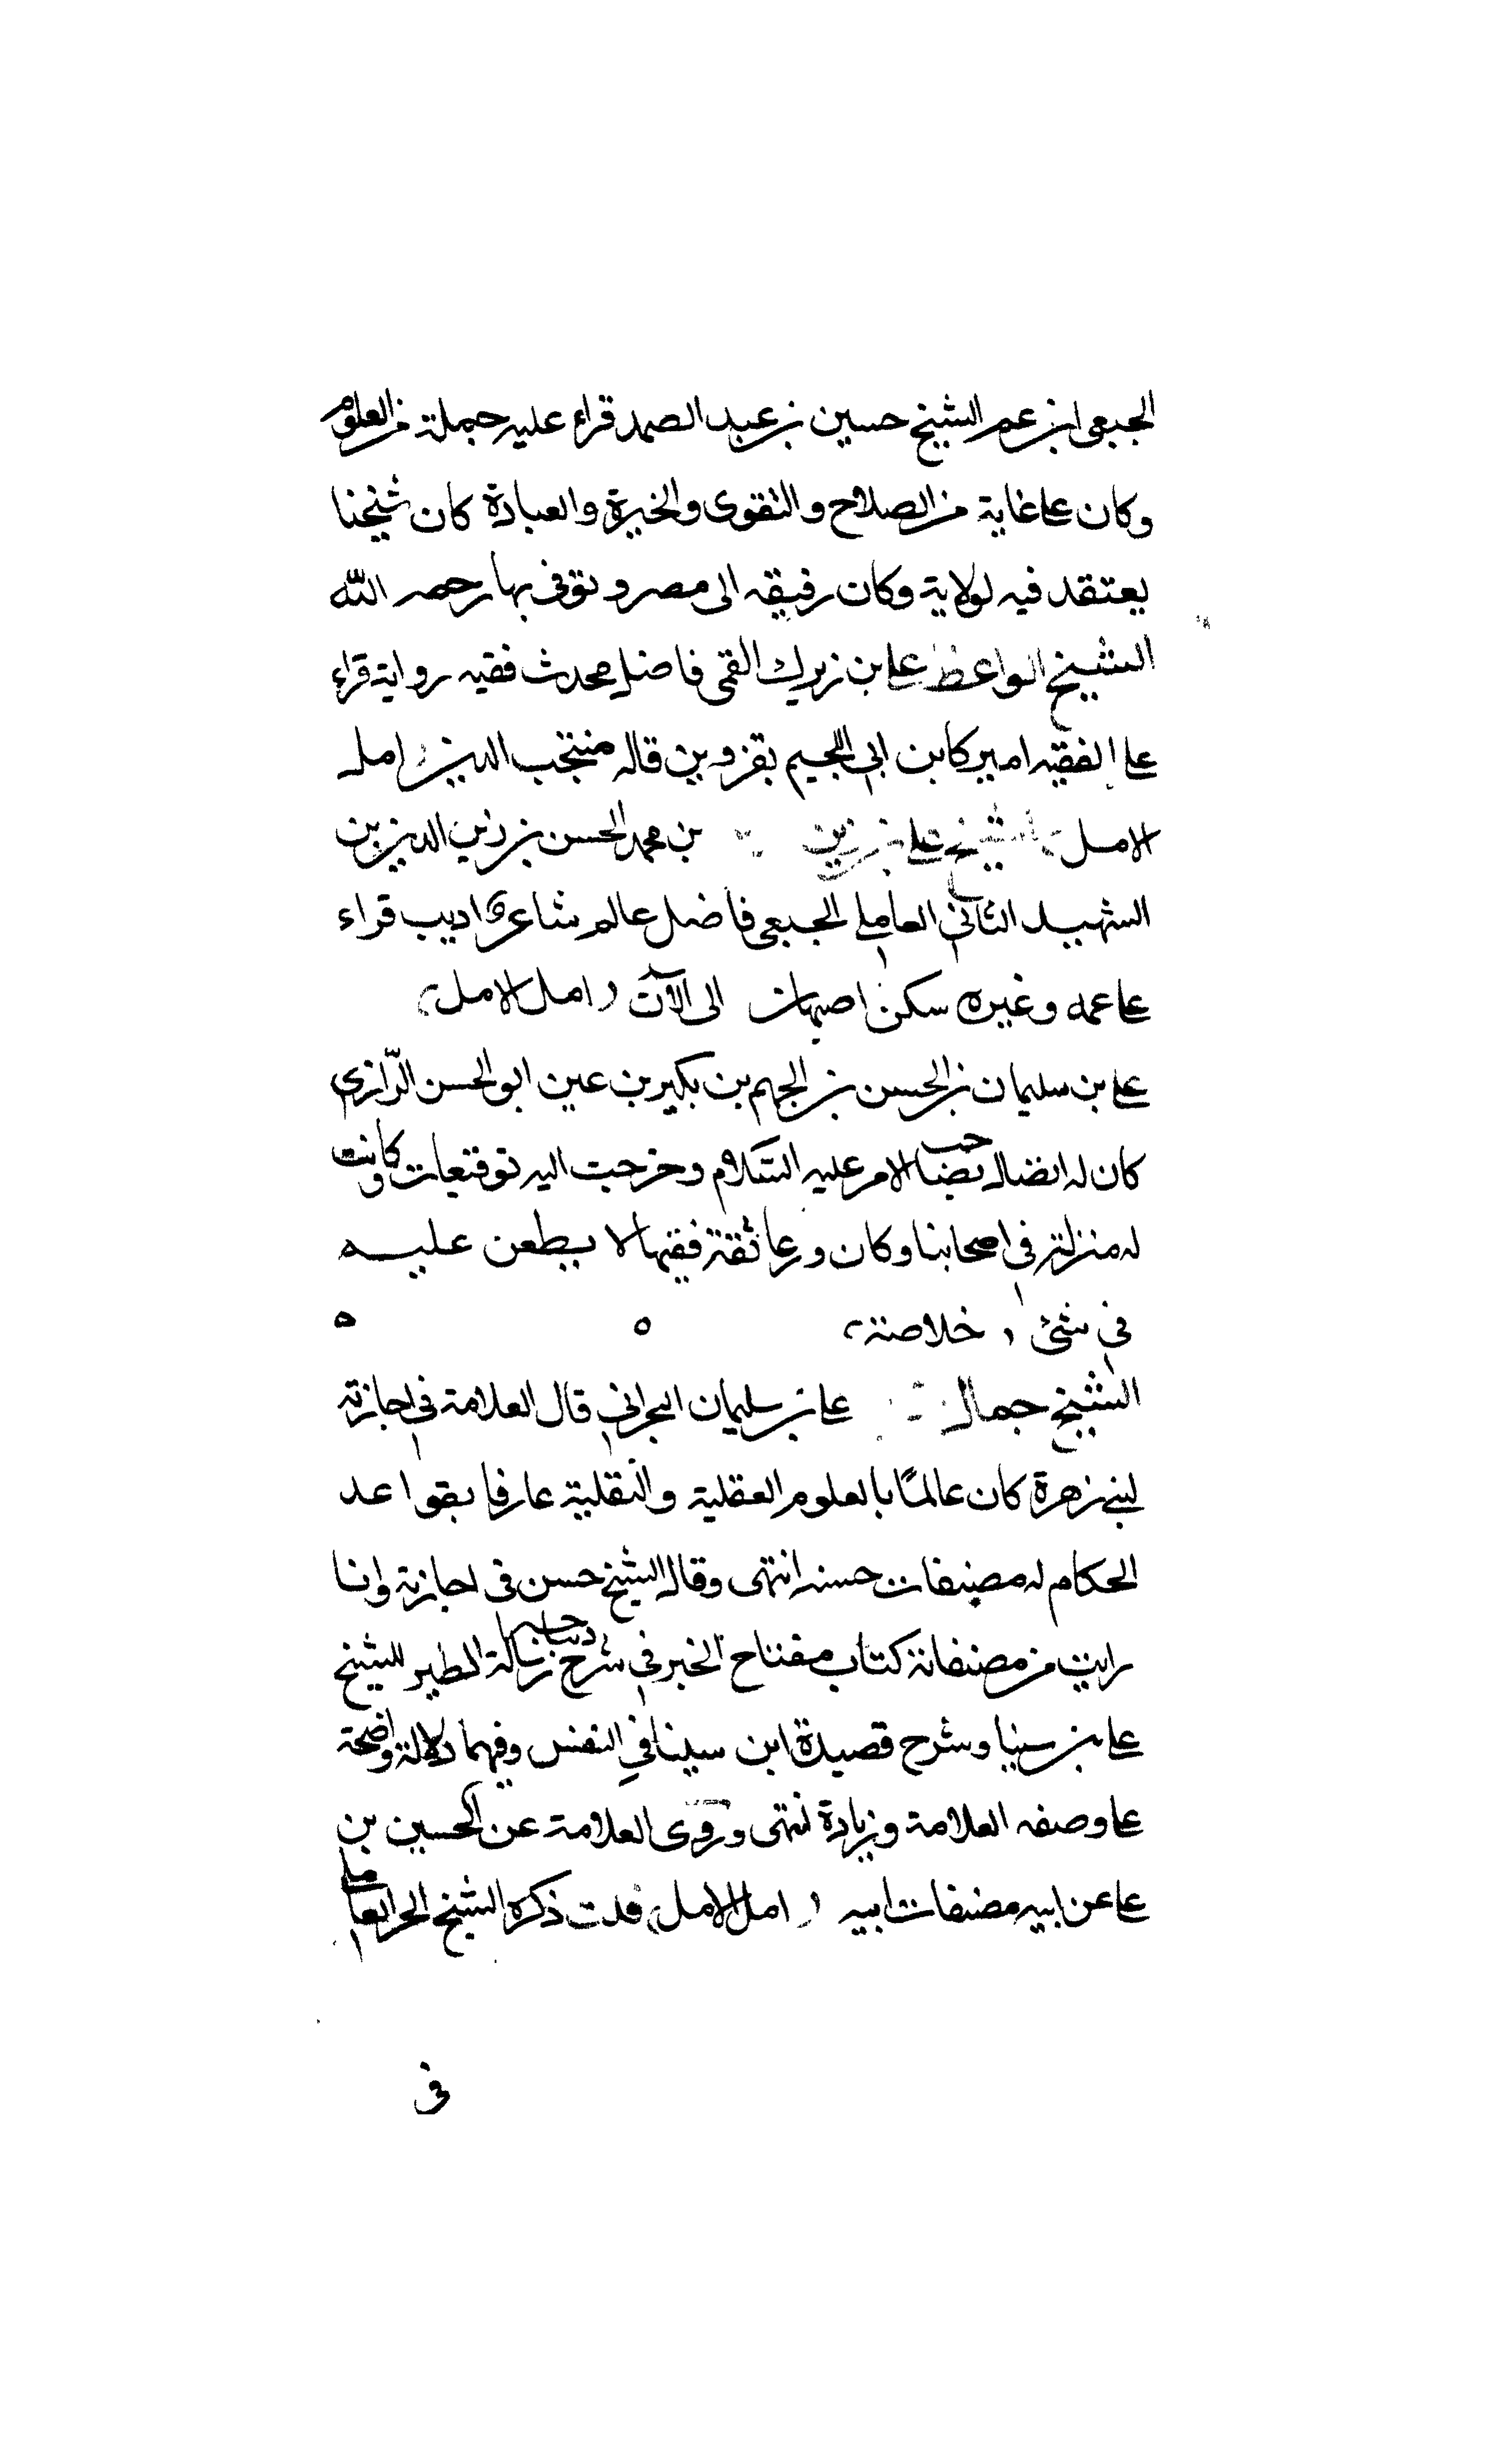 الجبعي ابن عم الشيخ حسين بن عبد الصمد قراء عليه جملة من العلوم
وكان على غاية من الصلاح والتقوى والخيرة والعبادة كان شيخنا
يعتقد فيه لولاية وكان رفيقه الى مصر وتوفى بها رحمه الله
الشيخ الواعظ على بن زيرك القمى فاضل محدث فقيه رواية قراء
على الفقيه اميركا بن ابى اللجيم بقزوين قاله منتجب الدين امله
الامل الشيخ على بن زين بن محمد الحسن بن زين الدين بن
الشهيد الثاني العاملي الجبعي فاضل عالم شاعر اديب قراء
على عمه وغيره سكن اصبهان الى الآن ( امل الامل )
على بن سليمان بن الحسن بن الجهم بن بكير بن عين ابو الحسن الرّازي
كان له اتصال بصاحب الامر عليه السّلام وخرجت اليه توقيعات وكانت
له منزلة في اصحابنا وكان ورعا ثقة فقيها لا يطعن عليه
في شئ ( خلاصة )
الشيخ جمال على بن سليمان البحراني قال العلامة في اجازته
لبني زهرة كان عالمًا بالعلوم العقلية والنقلية عارفا بقواعد
الحكام له مصنفات حسنه انتهى وقال الشيخ حسن في اجازته وانا
رايت من مصنفاته كتاب مفتاح الخير في شرح ديباجة رسالة الطير للشيخ
على بن سينا وشرح قصيدة ابن سينا في النفس وفيهما دلالة واضحة
على وصفه العلامة وزيادة انتهى وروى العلامة عن الحسين بن
على عن ابيه مصنفات ابيه ( امل الامل ) قلت ذكره الشيخ الحر العاملي
في